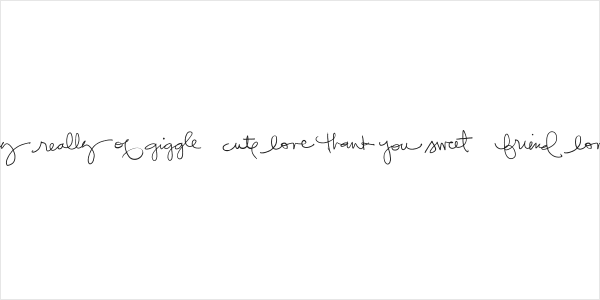 y really of giggle cute love thank you sweet friend lov